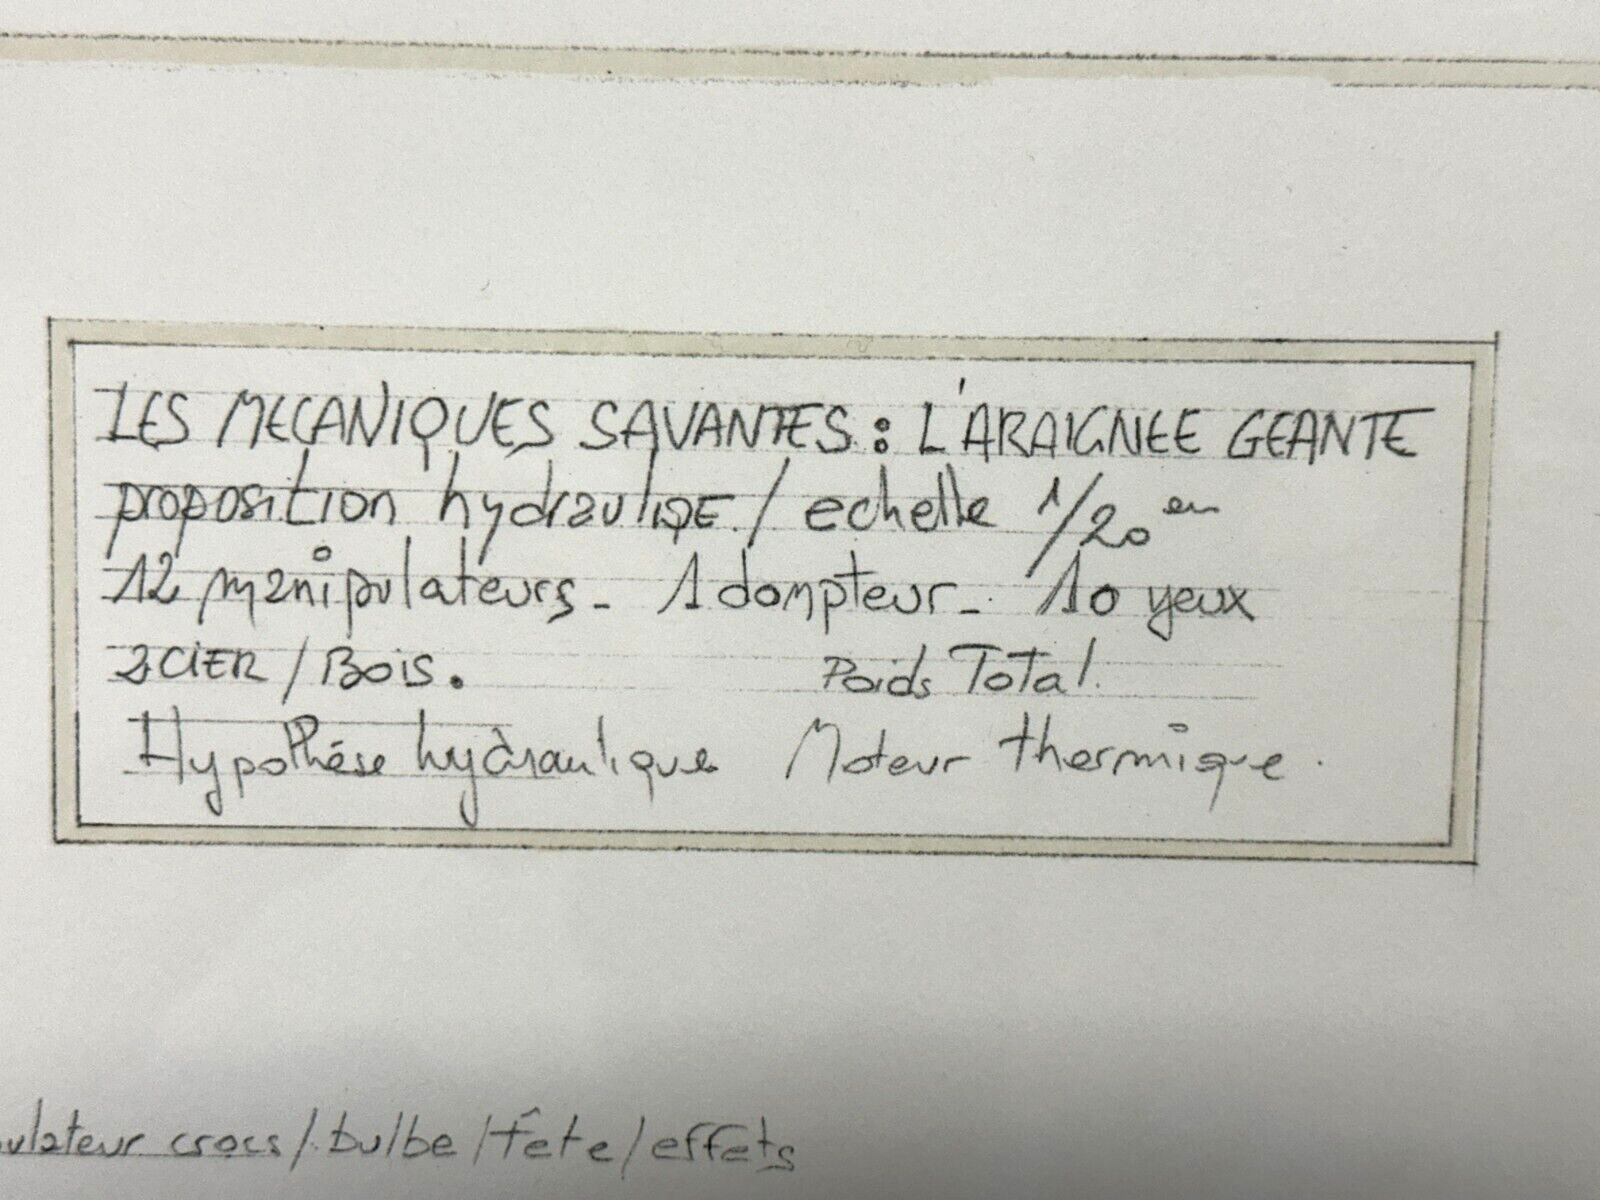 LES MECANIQUES SAVANTES : L'ARAIGNEE GEANTE
proposition hydraulIQE / echelle 1/20 em
12 manipulateurs - 1 dompteur - 10 yeux
aCIER / BOiS. Poids Total.
Hypothése hydraulique Moteur thermique.
ulateur crocs / bulbe / tête / effets